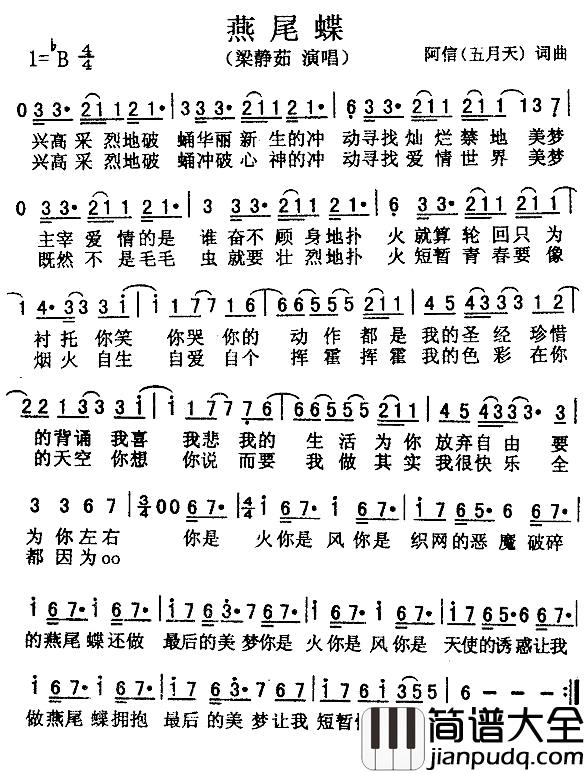 燕尾蝶
1=♭B 4/4 （梁静茹 演唱） 阿信（五月天）词曲
0 3 3· 2 1 1 1 2 1· | 3 3· 3 2 1 1 1 2 1· | 6 3 3· 2 1 1 2 1 1 3 7 |
兴高采烈地破 蛹华丽新生的冲 动寻找灿烂禁地 美梦
兴高采烈地破 蛹冲破心神的冲 动寻找爱情世界 美梦
0 3 3· 2 1 1 2 1· | 3 3 3· 2 1 1 2 1· | 6 3 3· 2 1 1 2 1 1 |
主宰爱情的是 谁奋不顾身地扑 火就算轮回只为
既然不是毛毛 虫就要壮烈地扑 火短暂青春要像
衬托你笑 你哭你的 动作都是我的圣经珍惜
烟火自生 自爱自个 挥霍挥霍我的色彩在你
的背诵我喜 我悲我的 生活为你放弃自由 要
的天空你想 你说而要 我做其实我很快乐 全
3 3 6 7 | 3/4 0 0 6 7· | 4/4 i 6 7· i 6 7· | i 7 6 5· 6 6 7· |
为你左右 你是 火你是风你是 织网的恶魔破碎
都因为oo
i 6 7· i 6 7· | i 7 6 3· 6 7· | i 6 7· i 6 7· | i 7 6 5· 6 6 7· |
的燕尾蝶还做 最后的美梦你是 火你是风你是 天使的诱惑让我
i 6 7· i 6 7· | i 7 6 3· 6 7· | i 6 7 6 7 i 3 5 5 | 6 - - - :||
做燕尾蝶拥抱 最后的美梦让我 短暂
简谱大全
jianpudq.com